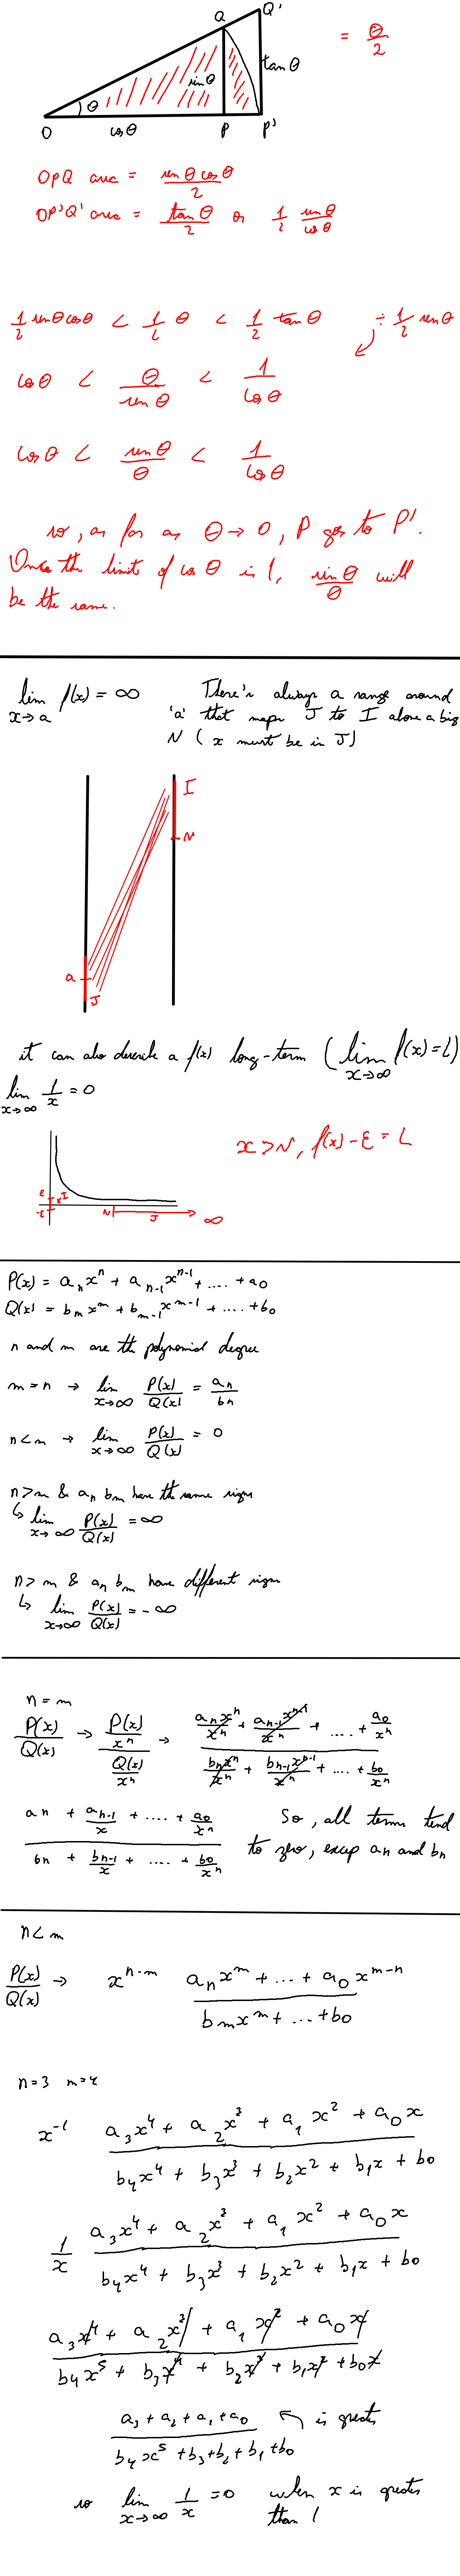 Q Q'
= θ/2
sinθ tanθ
θ
O cosθ P P'
OPQ area = sinθ cosθ / 2
OP'Q' area = tanθ / 2 or 1/2 sinθ / cosθ
1/2 sinθcosθ < 1/2 θ < 1/2 tanθ ÷ 1/2 sinθ
cosθ < θ / sinθ < 1 / cosθ
cosθ < sinθ / θ < 1 / cosθ
so, as far as θ → 0, P goes to P'.
Once the limit of cos θ is 1, sinθ / θ will
be the same.
lim x→a f(x) = ∞ There's always a range around
'a' that maps J to I above a big
N ( x must be in J)
I
N
a
J
it can also describe a f(x) long-term (lim x→∞ f(x) = L)
lim x→∞ 1/x = 0
x > N, f(x) - ε = L
ε I
-ε N J ∞
P(x) = aₙxⁿ + aₙ₋₁xⁿ⁻¹ + .... + a₀
Q(x) = bₘxᵐ + bₘ₋₁xᵐ⁻¹ + .... + b₀
n and m are the polynomial degree
m = n → lim x→∞ P(x)/Q(x) = aₙ/bₙ
n < m → lim x→∞ P(x)/Q(x) = 0
n > m & aₙ bₘ have the same sign
↳ lim x→∞ P(x)/Q(x) = ∞
n > m & aₙ bₘ have different sign
↳ lim x→∞ P(x)/Q(x) = - ∞
n = m
P(x)/Q(x) → (P(x)/xⁿ) / (Q(x)/xⁿ) → (aₙxⁿ/xⁿ + aₙ₋₁xⁿ⁻¹/xⁿ + .... + a₀/xⁿ) / (bₙxⁿ/xⁿ + bₙ₋₁xⁿ⁻¹/xⁿ + .... + b₀/xⁿ)
(aₙ + aₙ₋₁/x + .... + a₀/xⁿ) / (bₙ + bₙ₋₁/x + .... + b₀/xⁿ) So, all terms tend
to zero, excep aₙ and bₙ
n < m
P(x)/Q(x) → xⁿ⁻ᵐ (aₙxᵐ + ... + a₀xᵐ⁻ⁿ) / (bₘxᵐ + ... + b₀)
n=3 m=4
x⁻¹ (a₃x⁴ + a₂x³ + a₁x² + a₀x) / (b₄x⁴ + b₃x³ + b₂x² + b₁x + b₀)
1/x (a₃x⁴ + a₂x³ + a₁x² + a₀x) / (b₄x⁴ + b₃x³ + b₂x² + b₁x + b₀)
(a₃x⁴ + a₂x³ + a₁x² + a₀x) / (b₄x⁵ + b₃x⁴ + b₂x³ + b₁x² + b₀x)
(a₃ + a₂ + a₁ + a₀) / (b₄x⁵ + b₃ + b₂ + b₁ + b₀) ↖ is greater
so lim x→∞ 1/x = 0 when x is greater
than 1